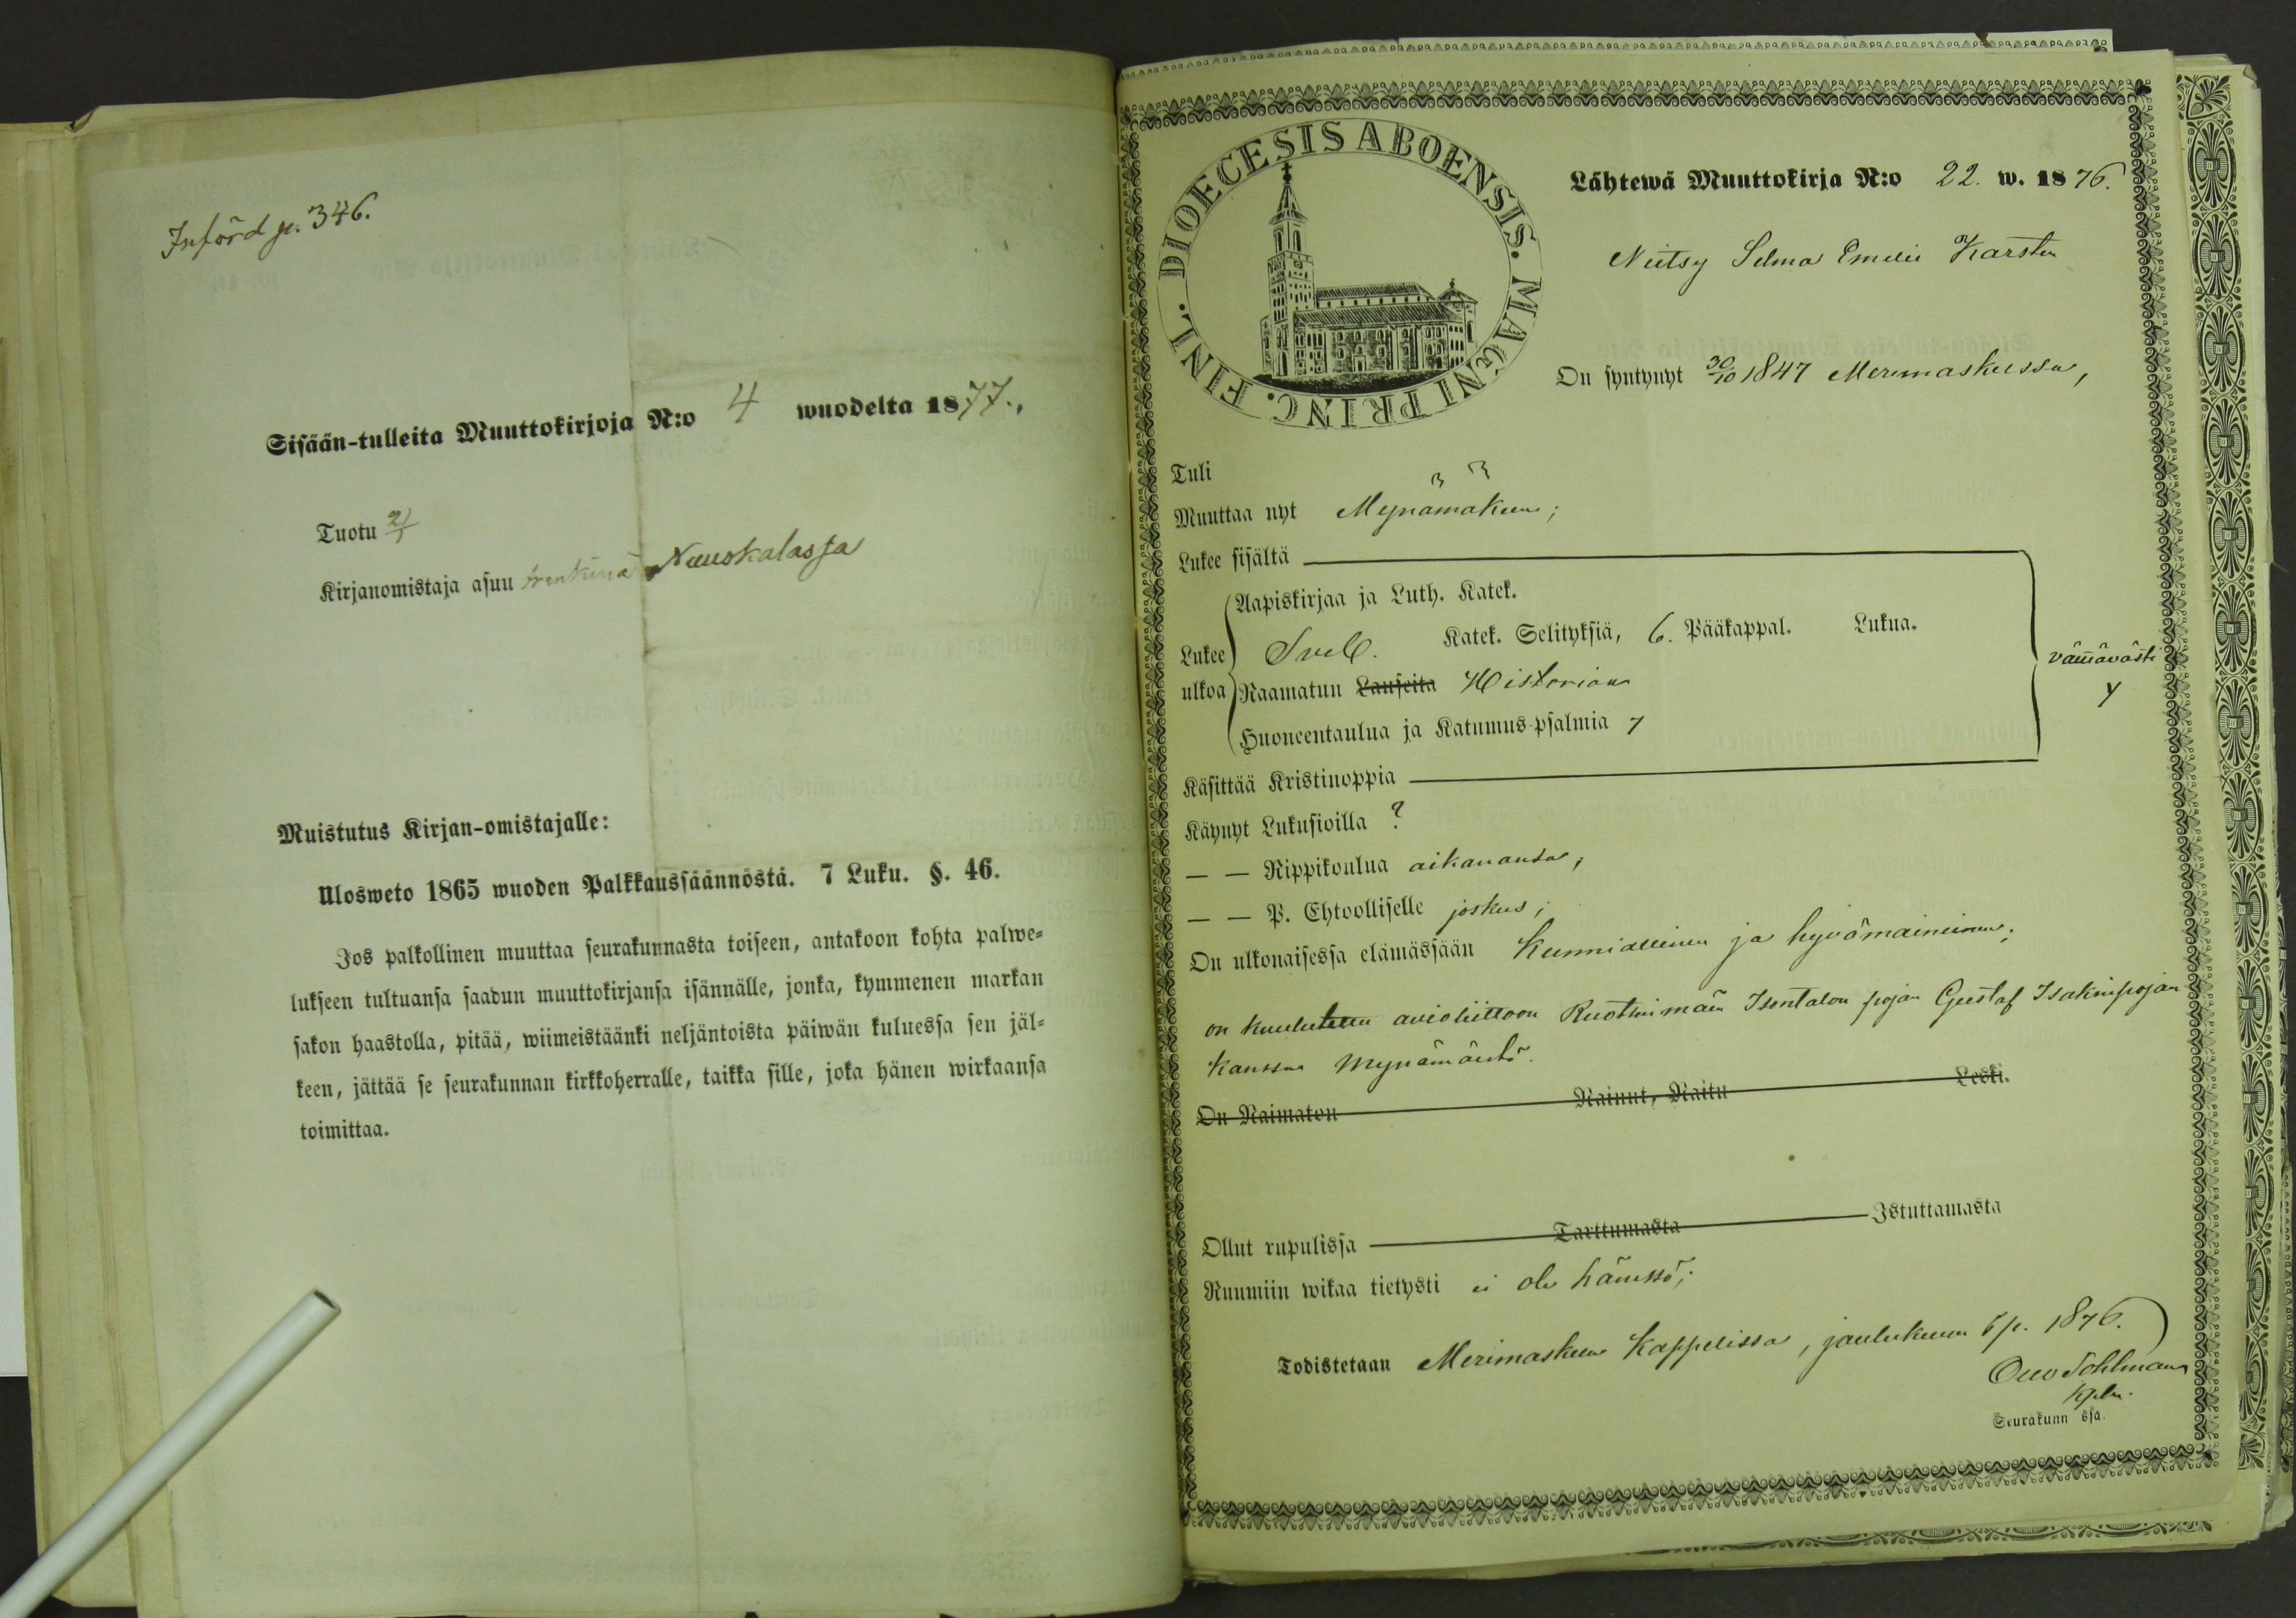 Införd p. 346.
Sisään-tulleita Muuttokirjoja N:o 4 wuodelta 1877.,
Tuotu 2/1
Kirjanomistaja asuu trenkinä Nauskalassa
Muistutus Kirjan-omistajalle:
Ulosweto 1865 wuoden Palkkaussäännöstä. 7 Luku. §. 46.
Jos palkollinen muuttaa seurakunnasta toiseen, antakoon kohta palwe-
lukseen tultuansa saadun muuttokirjansa isännälle, jonka, kymmenen markan
sakon haastolla, pitää, wiimeistäänki neljäntoista päiwän kuluessa sen jäl-
keen, jättää se seurakunnan kirkkoherralle, taikka sille, joka hänen wirkaansa
toimittaa.
DIOECESIS ABOENSIS. MAGNI PRINC. FINL.
Lähtewä Muuttokirja N:o 22. w. 1876.
Neitsy Selma Emelie Karsten
On syntynyt 30/10 1847 Merimaskussa,
Tuli
Muuttaa nyt Mynämäkeen;
Lukee sisältä
Aapiskirjaa ja Luth. Katek.
Lukee Sveb. Katek. Selityksiä, 6. Pääkappal. Lukua.
välttävästi
ulkoa Raamatun Lauseita Historian
Huoneentaulua ja Katumus-psalmia 7
Käsittää Kristinoppia
Käynyt Lukusioilla ?
— — Rippikoulua aikanansa,
— — P. Ehtoolliselle joskus;
On ulkonaisessa elämässään kunniallinen ja hyvämaineinen;
on kuulutettu avioliittoon Ruotsinmäen Isontalon pojan Gustaf Isakinpojan
kanssa Mynämäeltä.
On Naimaton Nainut, Naitu Leski.
Ollut rupulissa Tarttumasta Istuttamasta
Ruumiin wikaa tietysti ei ole hänessä;
Todistetaan Merimaskun kappelissa, joulukuun 6 p. 1876.
Otto Pohlman
Kpln.
Seurakunn ssa.